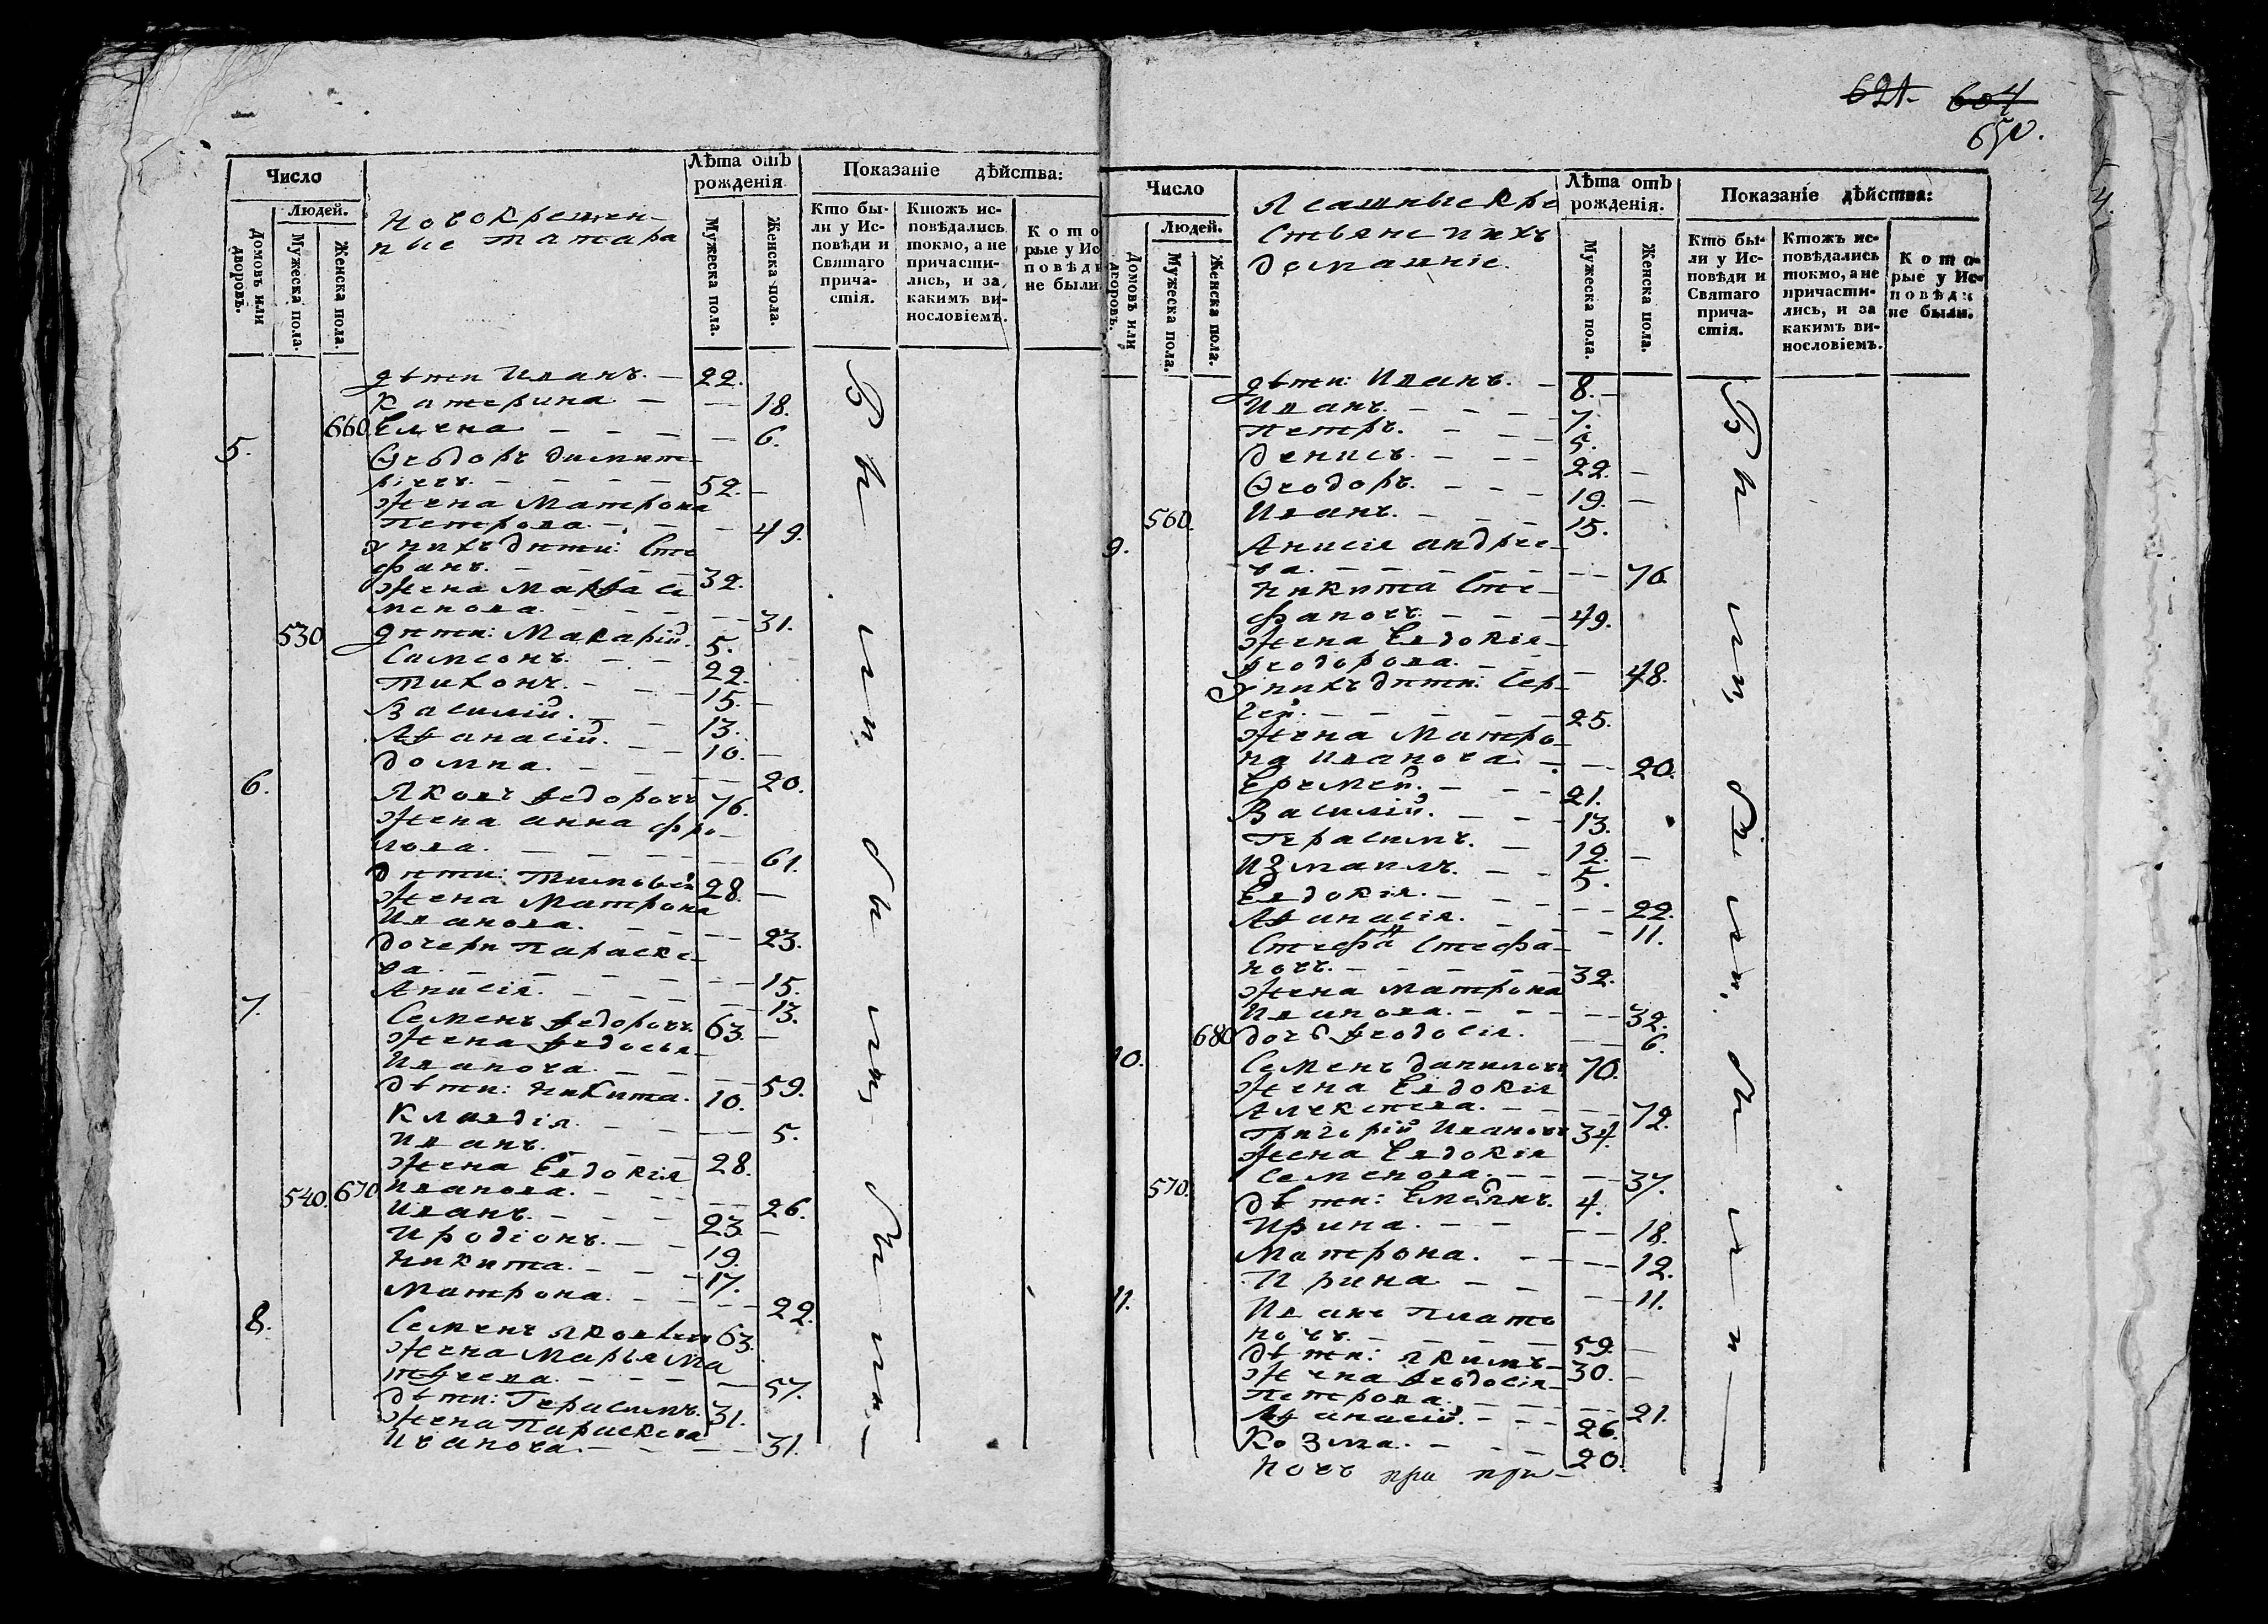 Число
Людей.
Домовъ или дворовъ.
Мужеска пола.
Женска пола.
Новокрещен-
ные татара
Лѣта отъ рожденія
Мужеска пола.
Женска пола.
Показаніе дѣйства:
Кто бы-
ли у Ис-
повѣди и
Святаго
прича-
стія.
Ктожъ ис-
повѣдались
токмо, а не
причасти-
лись, и за
какимъ ви-
нословіемъ.
Кото
рые у Ис
повѣди
не были.
дѣти Иванъ. — 22.
Катерина — — 18.
660. Елена — — — 6.
5. Ѳеодоръ Димит-
ріевъ. — — — 52. —
Жена Матрона
Петрова. — — 49.
У нихъ дѣти: Сте
фанъ. — — — 32.
Жена Марѳа Се
менова. — — — 31.
530 дѣти: Макарій. 5.
Самсонъ. — — 22.
Тихонъ. — — 15. —
Василій. — — 13.
Аѳанасій. — — 10. —
Домна. — — — 20.
6. Яковъ Ѳедоровъ 76.
Жена Анна Фро-
лова. — — — 61.
дѣти: Тимоѳей 28. —
Жена Матрона
Иванова. — — — 23.
дочери Параске-
ва. — — — 15.
Анисія. — — — 13.
7. Семенъ Ѳедоровъ. 63. —
Жена Ѳедосья-
Иванова. — — — 59.
дѣти: Никита. 10.
Клавдія. — — — 5.
Иванъ. — — 28.
Жена Евдокія
540. 670 Иванова. — — — 26.
Иванъ. — — — 23. —
Иродіонъ. — — 19.
Никита. — — — 17.
Матрона. — — — 22.
8. Семенъ Яковлевъ 63.
Жена Марья Ма
тѳеева. — — — 57.
дѣти: Герасимъ. 31.
Жена Параскева
Иванова. — — — 31.
621. 604
650.
4.
Число
Людей.
Домовъ или дворовъ.
Мужеска пола.
Женска пола.
Ясашные кре
стьяне и ихъ
домашніе.
Лѣта отъ рожденія.
Мужеска пола.
Женска пола.
Показаніе дѣйства:
Кто бы-
ли у Ис-
повѣди и
Святаго
прича-
стія.
Ктожъ ис-
повѣдались
токмо, а не
причасти-
лись, и за
какимъ ви-
нословіемъ.
Кото-
рые у Ис-
повѣди
не были.
дѣти: Иванъ. — 8. —
Иванъ. — — — 7.
Петръ. — — — 5.
Денисъ. — — — 22. —
Ѳеодоръ. — — — 19. —
560. Иванъ. — — — 15.
9. Анисія Андрее-
ва. — — — 76.
Никита Сте-
фановъ. — — — 49.
Жена Евдокія-
Ѳеодорова. — — — 48.
У нихъ дѣти: Сер-
гей. — — — 25.
Жена Матро-
на Иванова. — — 20.
Еремей. — — — 21.
Василій. — — — 13.
Герасимъ. — — 12. —
Измаилъ. — — 5.
Евдокія. — — — 22.
Аѳанасія. — — — 11.
Стефанъ Стефа-
новъ. — — — 32.
Жена Матрона
Иванова. — — — 32.
680 дочь Ѳеодосія. — — 6.
10. Семенъ Даниловъ 70.
Жена Евдокія
Алексѣева. — — — 72.
Григорій Ивановъ 34.
Жена Евдокія
Семенова. — — — 37.
570. дѣти: 4.
Ирина. — — — 18.
Матрона. — — — 12.
Ирина — — — 11.
11. Иванъ Плато
новъ. — — — 59. —
дѣти: Якимъ — 30. —
Жена Ѳеодосія-
Петрова. — — — 21.
Аѳанасій. — — — 26.
Козма. — — — 20.